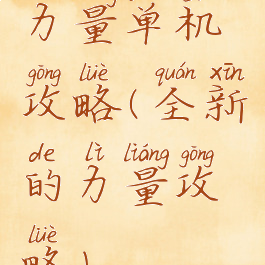 力量单机
gōng lüè quán xīn
攻略(全新
de lì liáng gōng
的力量攻
lüè
略)